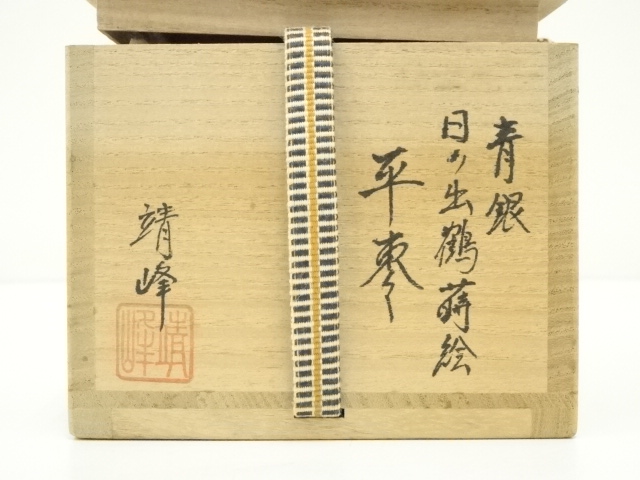 青銀
日の出鶴蒔絵
平棗
靖峰
靖峰